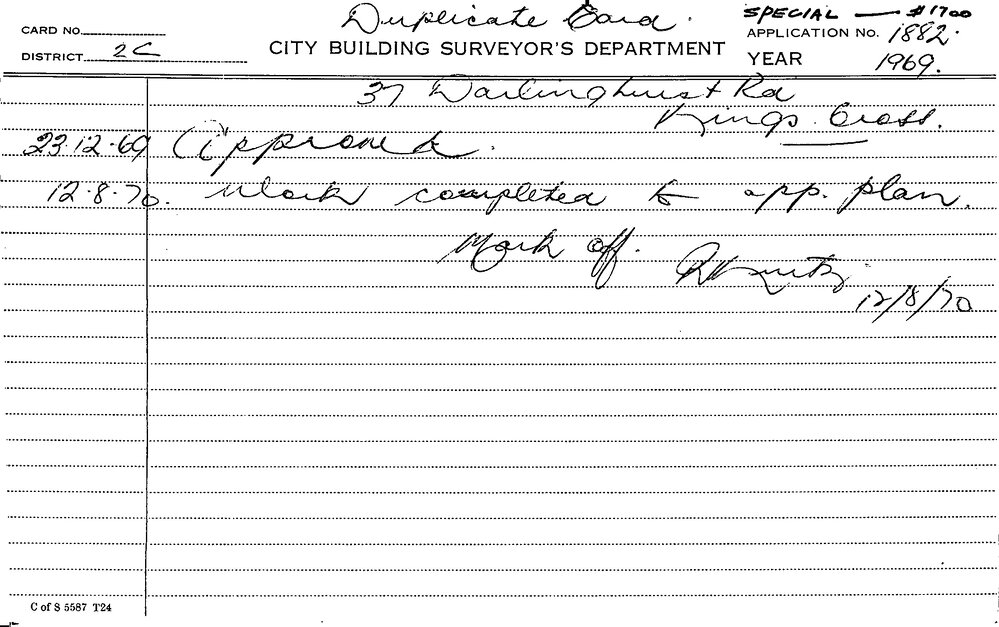 Duplicate Card.
SPECIAL — $1700
CARD NO.
APPLICATION No. 1882.
DISTRICT 2C
CITY BUILDING SURVEYOR'S DEPARTMENT
YEAR 1969.
37 Darlinghurst Rd
Kings Cross.
23.12.69 Approved.
12.8.70. Work completed to app. plan.
Mark off.
12/8/70
C of S 5587 T24